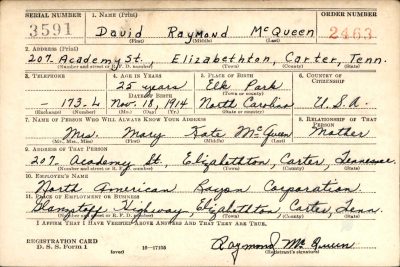 SERIAL NUMBER 1. NAME (Print) ORDER NUMBER
3591 David Raymond McQueen 2463
(First) (Middle) (Last)
2. ADDRESS (Print)
207 Academy St., Elizabethton, Carter, Tenn.
(Number and street or R. F. D. number) (Town) (County) (State)
3. TELEPHONE 4. AGE IN YEARS 5. PLACE OF BIRTH 6. COUNTRY OF CITIZENSHIP
25 years Elk Park
DATE OF BIRTH (Town or county)
173-L Nov. 18, 1914 North Carolina U.S.A.
(Exchange) (Number) (Mo.) (Day) (Yr.) (State or country)
7. NAME OF PERSON WHO WILL ALWAYS KNOW YOUR ADDRESS 8. RELATIONSHIP OF THAT PERSON
Mrs. Mary Kate McQueen Mother
(Mr., Mrs., Miss) (First) (Middle) (Last)
9. ADDRESS OF THAT PERSON
207 Academy St., Elizabethton, Carter, Tennessee
(Number and street or R. F. D. number) (Town) (County) (State)
10. EMPLOYER'S NAME
North American Rayon Corporation.
11. PLACE OF EMPLOYMENT OR BUSINESS
Glanzstoff Highway, Elizabethton, Carter, Tenn.
(Number and street or R. F. D. number) (Town) (County) (State)
I AFFIRM THAT I HAVE VERIFIED ABOVE ANSWERS AND THAT THEY ARE TRUE.
REGISTRATION CARD
D. S. S. Form 1 (over) 16—17105 Raymond McQueen
(Registrant's signature)